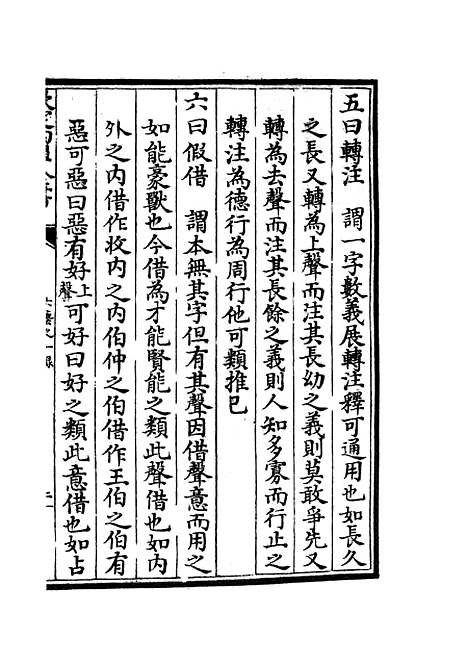 五曰轉注　謂一字數義展轉注釋可通用也如長久
之長又轉為上聲而注其長幼之義則莫敢爭先又
轉為去聲而注其長餘之義則人知多寡而行止之
轉注為德行為周行他可類推已
六曰假借　謂本無其字但有其聲因借聲意而用之
如能豪獸也今借為才能賢能之類此聲借也如內
外之內借作收內之內伯仲之伯借作王伯之伯有
惡可惡曰惡有好上聲可好曰好之類此意借也如占